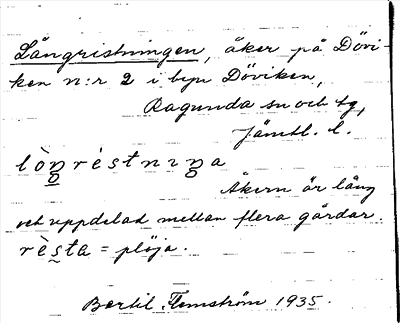 Långristningen, åker på Dövi-
ken n:r 2 i byn Döviken,
Ragunda sn och tg,
Jämtl. l.
lòŋrèstnɪŋa
Åkern är lång
och uppdelad mellan flera gårdar.
rèsta = plöja.
Bertil Flemström 1935.